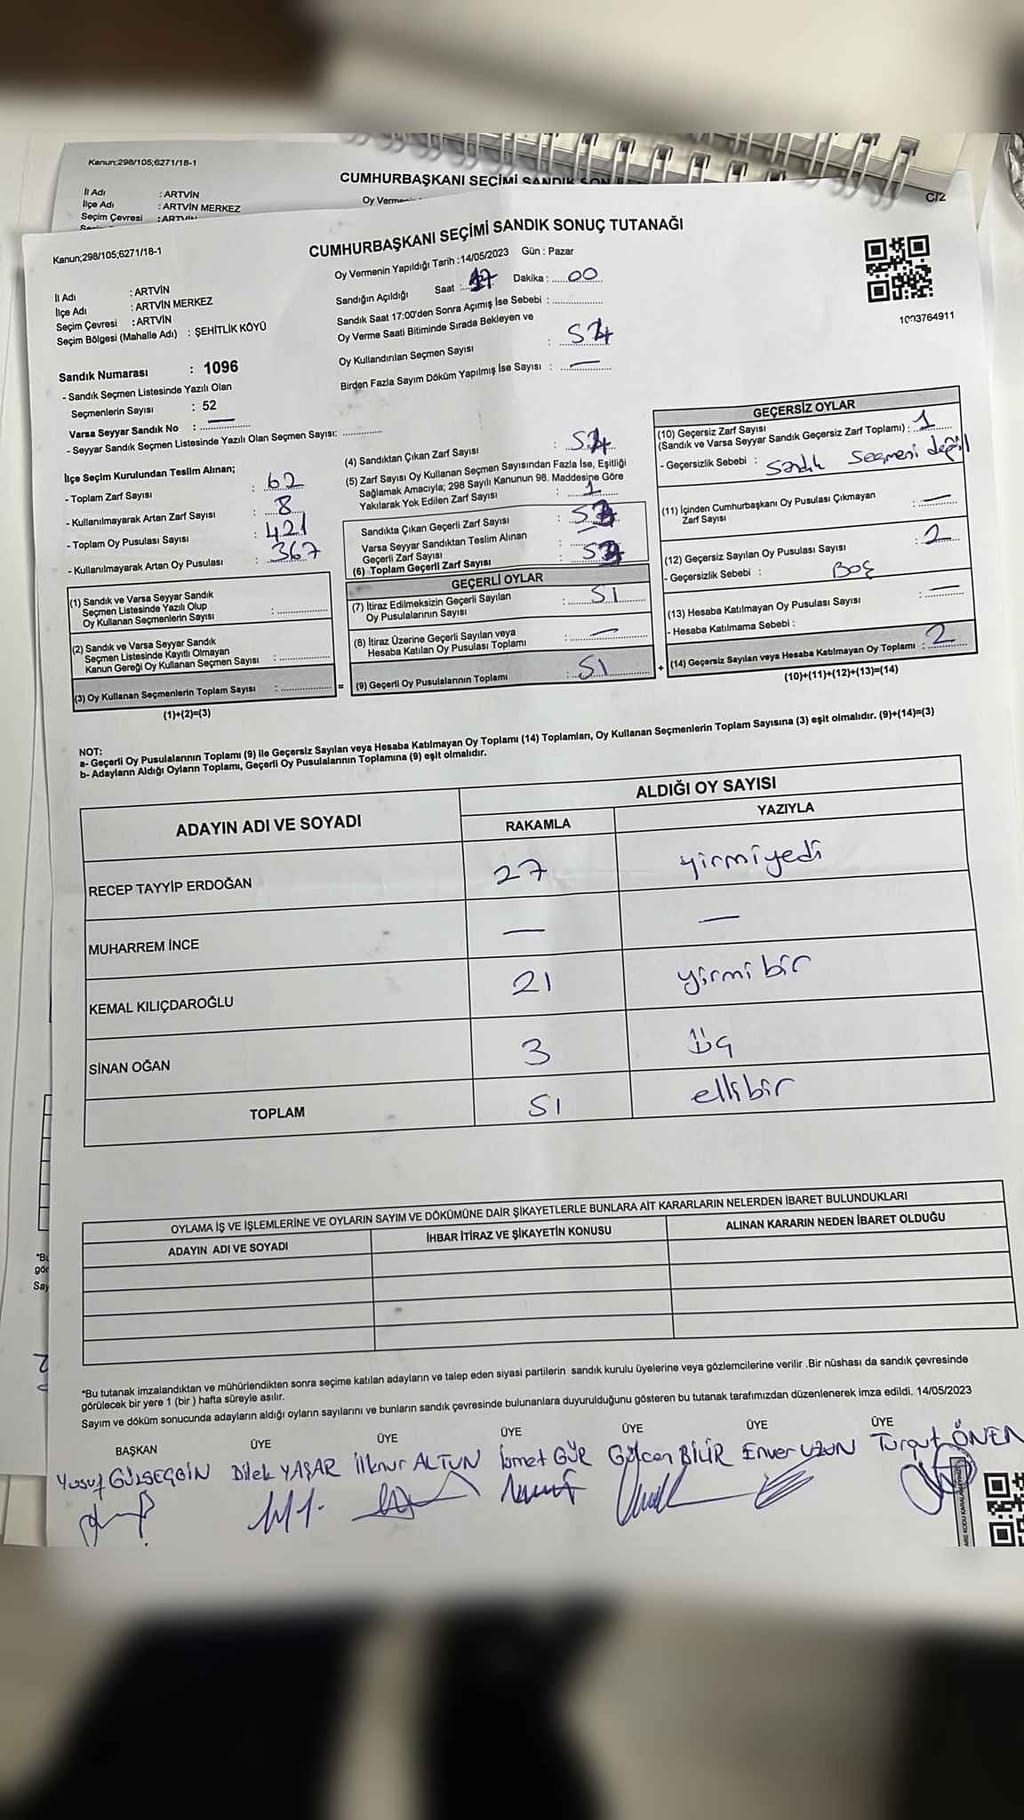 Kanun;298/105;6271/18-1
CUMHURBAŞKANI SEÇİMİ SANDIK SON
İl Adı : ARTVİN
İlçe Adı : ARTVİN MERKEZ
Seçim Çevresi : ARTVİN
Oy Vermenin
C/2
Kanun;298/105;6271/18-1
CUMHURBAŞKANI SEÇİMİ SANDIK SONUÇ TUTANAĞI
Oy Vermenin Yapıldığı Tarih : 14/05/2023 Gün : Pazar
İl Adı : ARTVİN
İlçe Adı : ARTVİN MERKEZ
Seçim Çevresi : ARTVİN
Seçim Bölgesi (Mahalle Adı) : ŞEHİTLİK KÖYÜ
Sandığın Açıldığı Saat : 17 Dakika : 00
Sandık Saat 17:00'den Sonra Açımış İse Sebebi :
Oy Verme Saati Bitiminde Sırada Bekleyen ve
Oy Kullandırılan Seçmen Sayısı :
Birden Fazla Sayım Döküm Yapılmış İse Sayısı : —
1003764911
Sandık Numarası : 1096
- Sandık Seçmen Listesinde Yazılı Olan
Seçmenlerin Sayısı : 52
Varsa Seyyar Sandık No : —
- Seyyar Sandık Seçmen Listesinde Yazılı Olan Seçmen Sayısı:
İlçe Seçim Kurulundan Teslim Alınan;
- Toplam Zarf Sayısı : 62
- Kullanılmayarak Artan Zarf Sayısı : 8
- Toplam Oy Pusulası Sayısı : 421
- Kullanılmayarak Artan Oy Pusulası : 367
(1) Sandık ve Varsa Seyyar Sandık
Seçmen Listesinde Yazılı Olup
Oy Kullanan Seçmenlerin Sayısı :
(2) Sandık ve Varsa Seyyar Sandık
Seçmen Listesinde Kayıtlı Olmayan
Kanun Gereği Oy Kullanan Seçmen Sayısı :
(3) Oy Kullanan Seçmenlerin Toplam Sayısı :
=
(1)+(2)=(3)
(4) Sandıktan Çıkan Zarf Sayısı :
(5) Zarf Sayısı Oy Kullanan Seçmen Sayısından Fazla İse, Eşitliği
Sağlamak Amacıyla; 298 Sayılı Kanunun 98. Maddesine Göre
Yakılarak Yok Edilen Zarf Sayısı : 1
Sandıkta Çıkan Geçerli Zarf Sayısı :
Varsa Seyyar Sandıktan Teslim Alınan
Geçerli Zarf Sayısı : —
(6) Toplam Geçerli Zarf Sayısı :
GEÇERLİ OYLAR
(7) İtiraz Edilmeksizin Geçerli Sayılan
Oy Pusulalarının Sayısı : 51
(8) İtiraz Üzerine Geçerli Sayılan veya
Hesaba Katılan Oy Pusulası Toplamı : —
(9) Geçerli Oy Pusulalarının Toplamı : 51
+
GEÇERSİZ OYLAR
(10) Geçersiz Zarf Sayısı
(Sandık ve Varsa Seyyar Sandık Geçersiz Zarf Toplamı) : 1
- Geçersizlik Sebebi : Sandık Seçmeni değil
(11) İçinden Cumhurbaşkanı Oy Pusulası Çıkmayan
Zarf Sayısı : —
(12) Geçersiz Sayılan Oy Pusulası Sayısı : 2
- Geçersizlik Sebebi : Boş
(13) Hesaba Katılmayan Oy Pusulası Sayısı : —
- Hesaba Katılmama Sebebi :
(14) Geçersiz Sayılan veya Hesaba Katılmayan Oy Toplamı : 2
(10)+(11)+(12)+(13)=(14)
NOT:
a- Geçerli Oy Pusulalarının Toplamı (9) ile Geçersiz Sayılan veya Hesaba Katılmayan Oy Toplamı (14) Toplamları, Oy Kullanan Seçmenlerin Toplam Sayısına (3) eşit olmalıdır. (9)+(14)=(3)
b- Adayların Aldığı Oyların Toplamı, Geçerli Oy Pusulalarının Toplamına (9) eşit olmalıdır.
ADAYIN ADI VE SOYADI
ALDIĞI OY SAYISI
RAKAMLA YAZIYLA
RECEP TAYYİP ERDOĞAN 27 yirmiyedi
MUHARREM İNCE — —
KEMAL KILIÇDAROĞLU 21 yirmi bir
SİNAN OĞAN 3 üç
TOPLAM 51 ellibir
OYLAMA İŞ VE İŞLEMLERİNE VE OYLARIN SAYIM VE DÖKÜMÜNE DAİR ŞİKAYETLERLE BUNLARA AİT KARARLARIN NELERDEN İBARET BULUNDUKLARI
ADAYIN ADI VE SOYADI İHBAR İTİRAZ VE ŞİKAYETİN KONUSU ALINAN KARARIN NEDEN İBARET OLDUĞU
*Bu tutanak imzalandıktan ve mühürlendikten sonra seçime katılan adayların ve talep eden siyasi partilerin sandık kurulu üyelerine veya gözlemcilerine verilir .Bir nüshası da sandık çevresinde
görülecek bir yere 1 (bir ) hafta süreyle asılır.
Sayım ve döküm sonucunda adayların aldığı oyların sayılarını ve bunların sandık çevresinde bulunanlara duyurulduğunu gösteren bu tutanak tarafımızdan düzenlenerek imza edildi. 14/05/2023
BAŞKAN ÜYE ÜYE ÜYE ÜYE ÜYE ÜYE
Yusuf Dilek YAŞAR İlknur ALTUN İsmet GÜR Gülcan BİLİR Enver UZUN Turgut ÖNEN